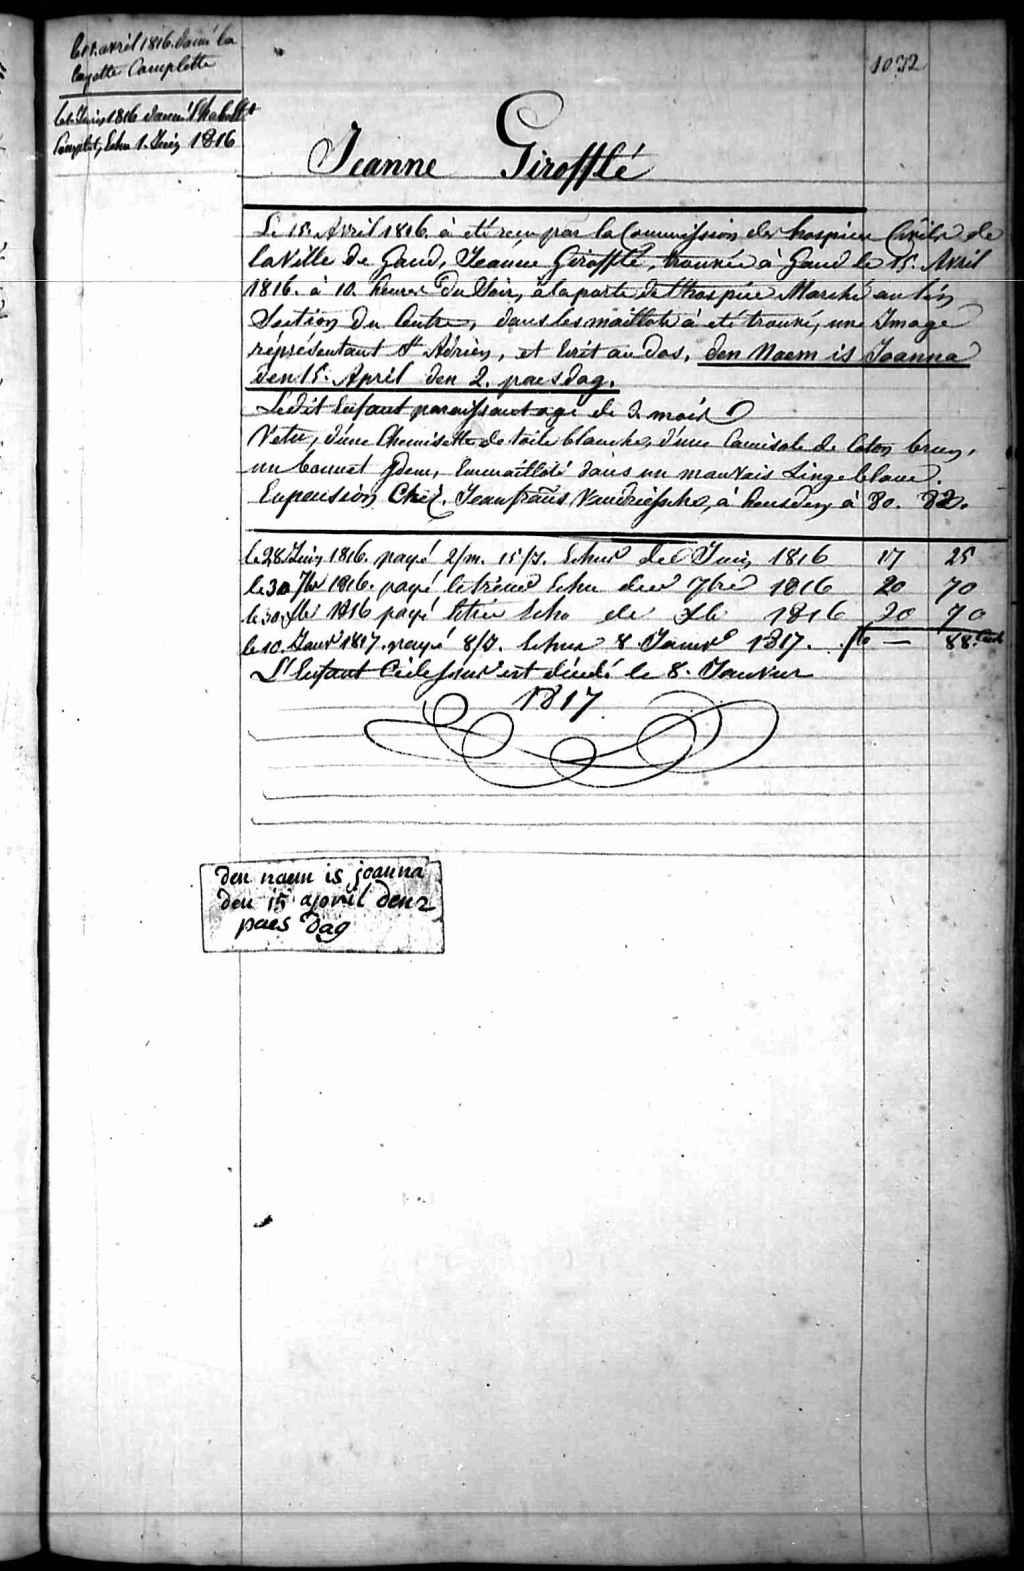 le 15. avril 1816. donné la
layette Complette
le 1 Juin 1816 donné l'habillt
Complet, Echu 1. Juin 1816
1072
Jeanne Girofflé
Le 15. Avril 1816. à été reçu par la Commission des hospices Civils de
la Ville de Gand, Jeanne Girofflé, trouvée à Gand le 15. Avril
1816. à 10. heures Du Soir, à la porte de l'hospice Marché au lin
Section Du Centre, dans les maillots à été trouvé, une Image
réprésentant St Adrien, et Ecrit au dos, den Naem is Joanna
den 15. April den 2. paesdag.
Ledit Enfant paraissant agé de 3. mois
Vetu, d'une Chemisette de toile blanche, d'une Camisole de Coton brun,
un bonnet Idem, Emmailloté dans un mauvais Linge blanc.
En pension Chez. Jean frans Vandriessche, à heusden à 80. 82.
le 28 Juin 1816. payé 2/m. 15/J. Echus de Juin 1816 17 25
le 30 7bre 1816. payé le trime Echu de 7bre 1816 20 70
le 30. Xbr 1816 payé le trie Echu de Xbr 1816 20 70
le 10. Janvr 1817. payé 8/J. Echus 8 Janvr 1817. fl — 88.
L'Enfant Cidessus est décédé le 8. Janvier
1817
den naem is joanna
den 15 april den 2
paes dag